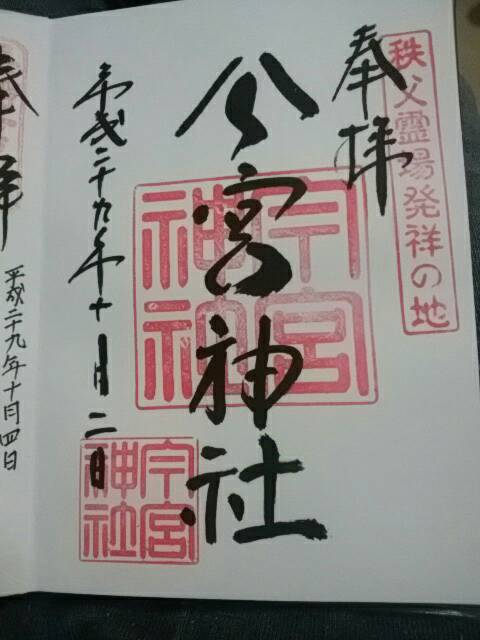 秩父霊場発祥の地
奉拝
今宮神社
今宮神社
平成二十九年十月二日
今宮神社
奉拝
平成二十九年十月四日